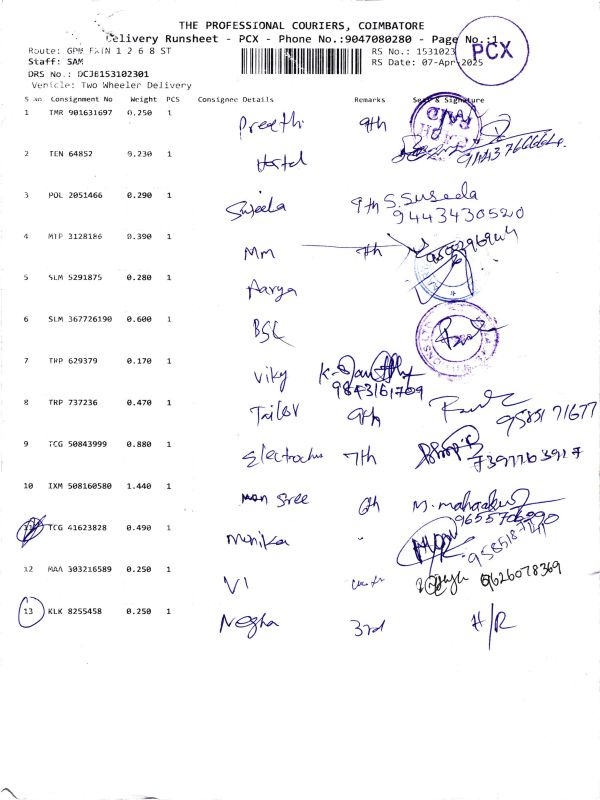 THE PROFESSIONAL COURIERS, COIMBATORE
Delivery Runsheet - PCX - Phone No.:9047080280 - Page No.:1
Route: GPM 1 2 6 8 ST
RS No.: 1531023
PCX
Staff: SAM
RS Date: 07-Apr-2025
DRS No.: DCJB153102301
Vehicle: Two Wheeler Delivery
S No. Consignment No Weight PCS Consignee Details Remarks Seal & Signature
1 TMR 901631697 0.250 1 Preethi 9th
2 TEN 64852 0.230 1 Hostel
3 POL 2051466 0.290 1 Sujeela 9th S. Suseela
9443430520
4 MTP 3128186 0.390 1 Mm 7th
5 SLM 5291875 0.280 1 Aarya
6 SLM 367726190 0.600 1 BSC
7 TRP 629379 0.170 1 Viky
9843161709
8 TRP 737236 0.470 1 Tailor 9th 9585171677
9 TCG 50843999 0.880 1 7th 7397763917
10 IXM 508160580 1.440 1 Sree 6th
9655706990
11 TCG 41623828 0.490 1 Monika
12 MAA 303216589 0.250 1 VI 9626078369
13 KLK 8255458 0.250 1 Negha 3rd H/R